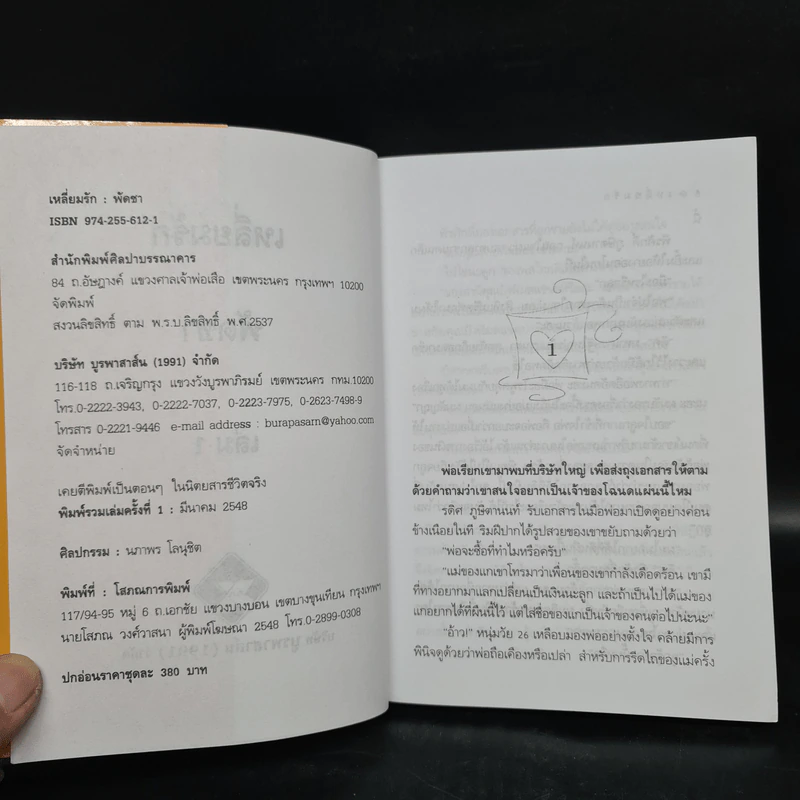 เหลี่ยมรัก : พัดชา
ISBN 974-255-612-1
สำนักพิมพ์ศิลปาบรรณาคาร
84 ถ.อัษฎางค์ แขวงศาลเจ้าพ่อเสือ เขตพระนคร กรุงเทพฯ 10200
จัดพิมพ์
สงวนลิขสิทธิ์ ตาม พ.ร.บ.ลิขสิทธิ์ พ.ศ.2537
บริษัท บูรพาสาส์น (1991) จำกัด
116-118 ถ.เจริญกรุง แขวงวังบูรพาภิรมย์ เขตพระนคร กทม.10200
โทร.0-2222-3943, 0-2222-7037, 0-2223-7975, 0-2623-7498-9
โทรสาร 0-2221-9446 e-mail address : burapasarn@yahoo.com
จัดจำหน่าย
เคยตีพิมพ์เป็นตอนๆ ในนิตยสารชีวิตจริง
พิมพ์รวมเล่มครั้งที่ 1 : มีนาคม 2548
ศิลปกรรม : นภาพร โลนุชิต
พิมพ์ที่ : โสภณการพิมพ์
117/94-95 หมู่ 6 ถ.เอกชัย แขวงบางบอน เขตบางขุนเทียน กรุงเทพฯ
นายโสภณ วงศ์วาสนา ผู้พิมพ์โฆษณา 2548 โทร.0-2899-0308
ปกอ่อนราคาชุดละ 380 บาท
1
พ่อเรียกเขามาพบที่บริษัทใหญ่ เพื่อส่งถุงเอกสารให้ตาม
ด้วยคำถามว่าเขาสนใจอยากเป็นเจ้าของโฉนดแผ่นนี้ไหม
รดิศ ภูษิตานนท์ รับเอกสารในมือพ่อมาเปิดดูอย่างค่อน
ข้างเนือยในที ริมฝีปากได้รูปสวยของเขาขยับถามด้วยว่า
"พ่อจะซื้อที่ทำไมหรือครับ"
"แม่ของแกเขาโทรมาว่าเพื่อนของเขากำลังเดือดร้อน เขามี
ที่ทางอยากมาแลกเปลี่ยนเป็นเงินนะลูก และถ้าเป็นไปได้แม่ของ
แกอยากได้ที่ผืนนี้ไว้ แต่ใส่ชื่อของแกเป็นเจ้าของคนต่อไปน่ะนะ"
"อ้าว!" หนุ่มวัย 26 เหลือบมองพ่ออย่างตั้งใจ คล้ายมีการ
พินิจดูด้วยว่าพ่อถือเคืองหรือเปล่า สำหรับการรีดไถของแม่ครั้ง